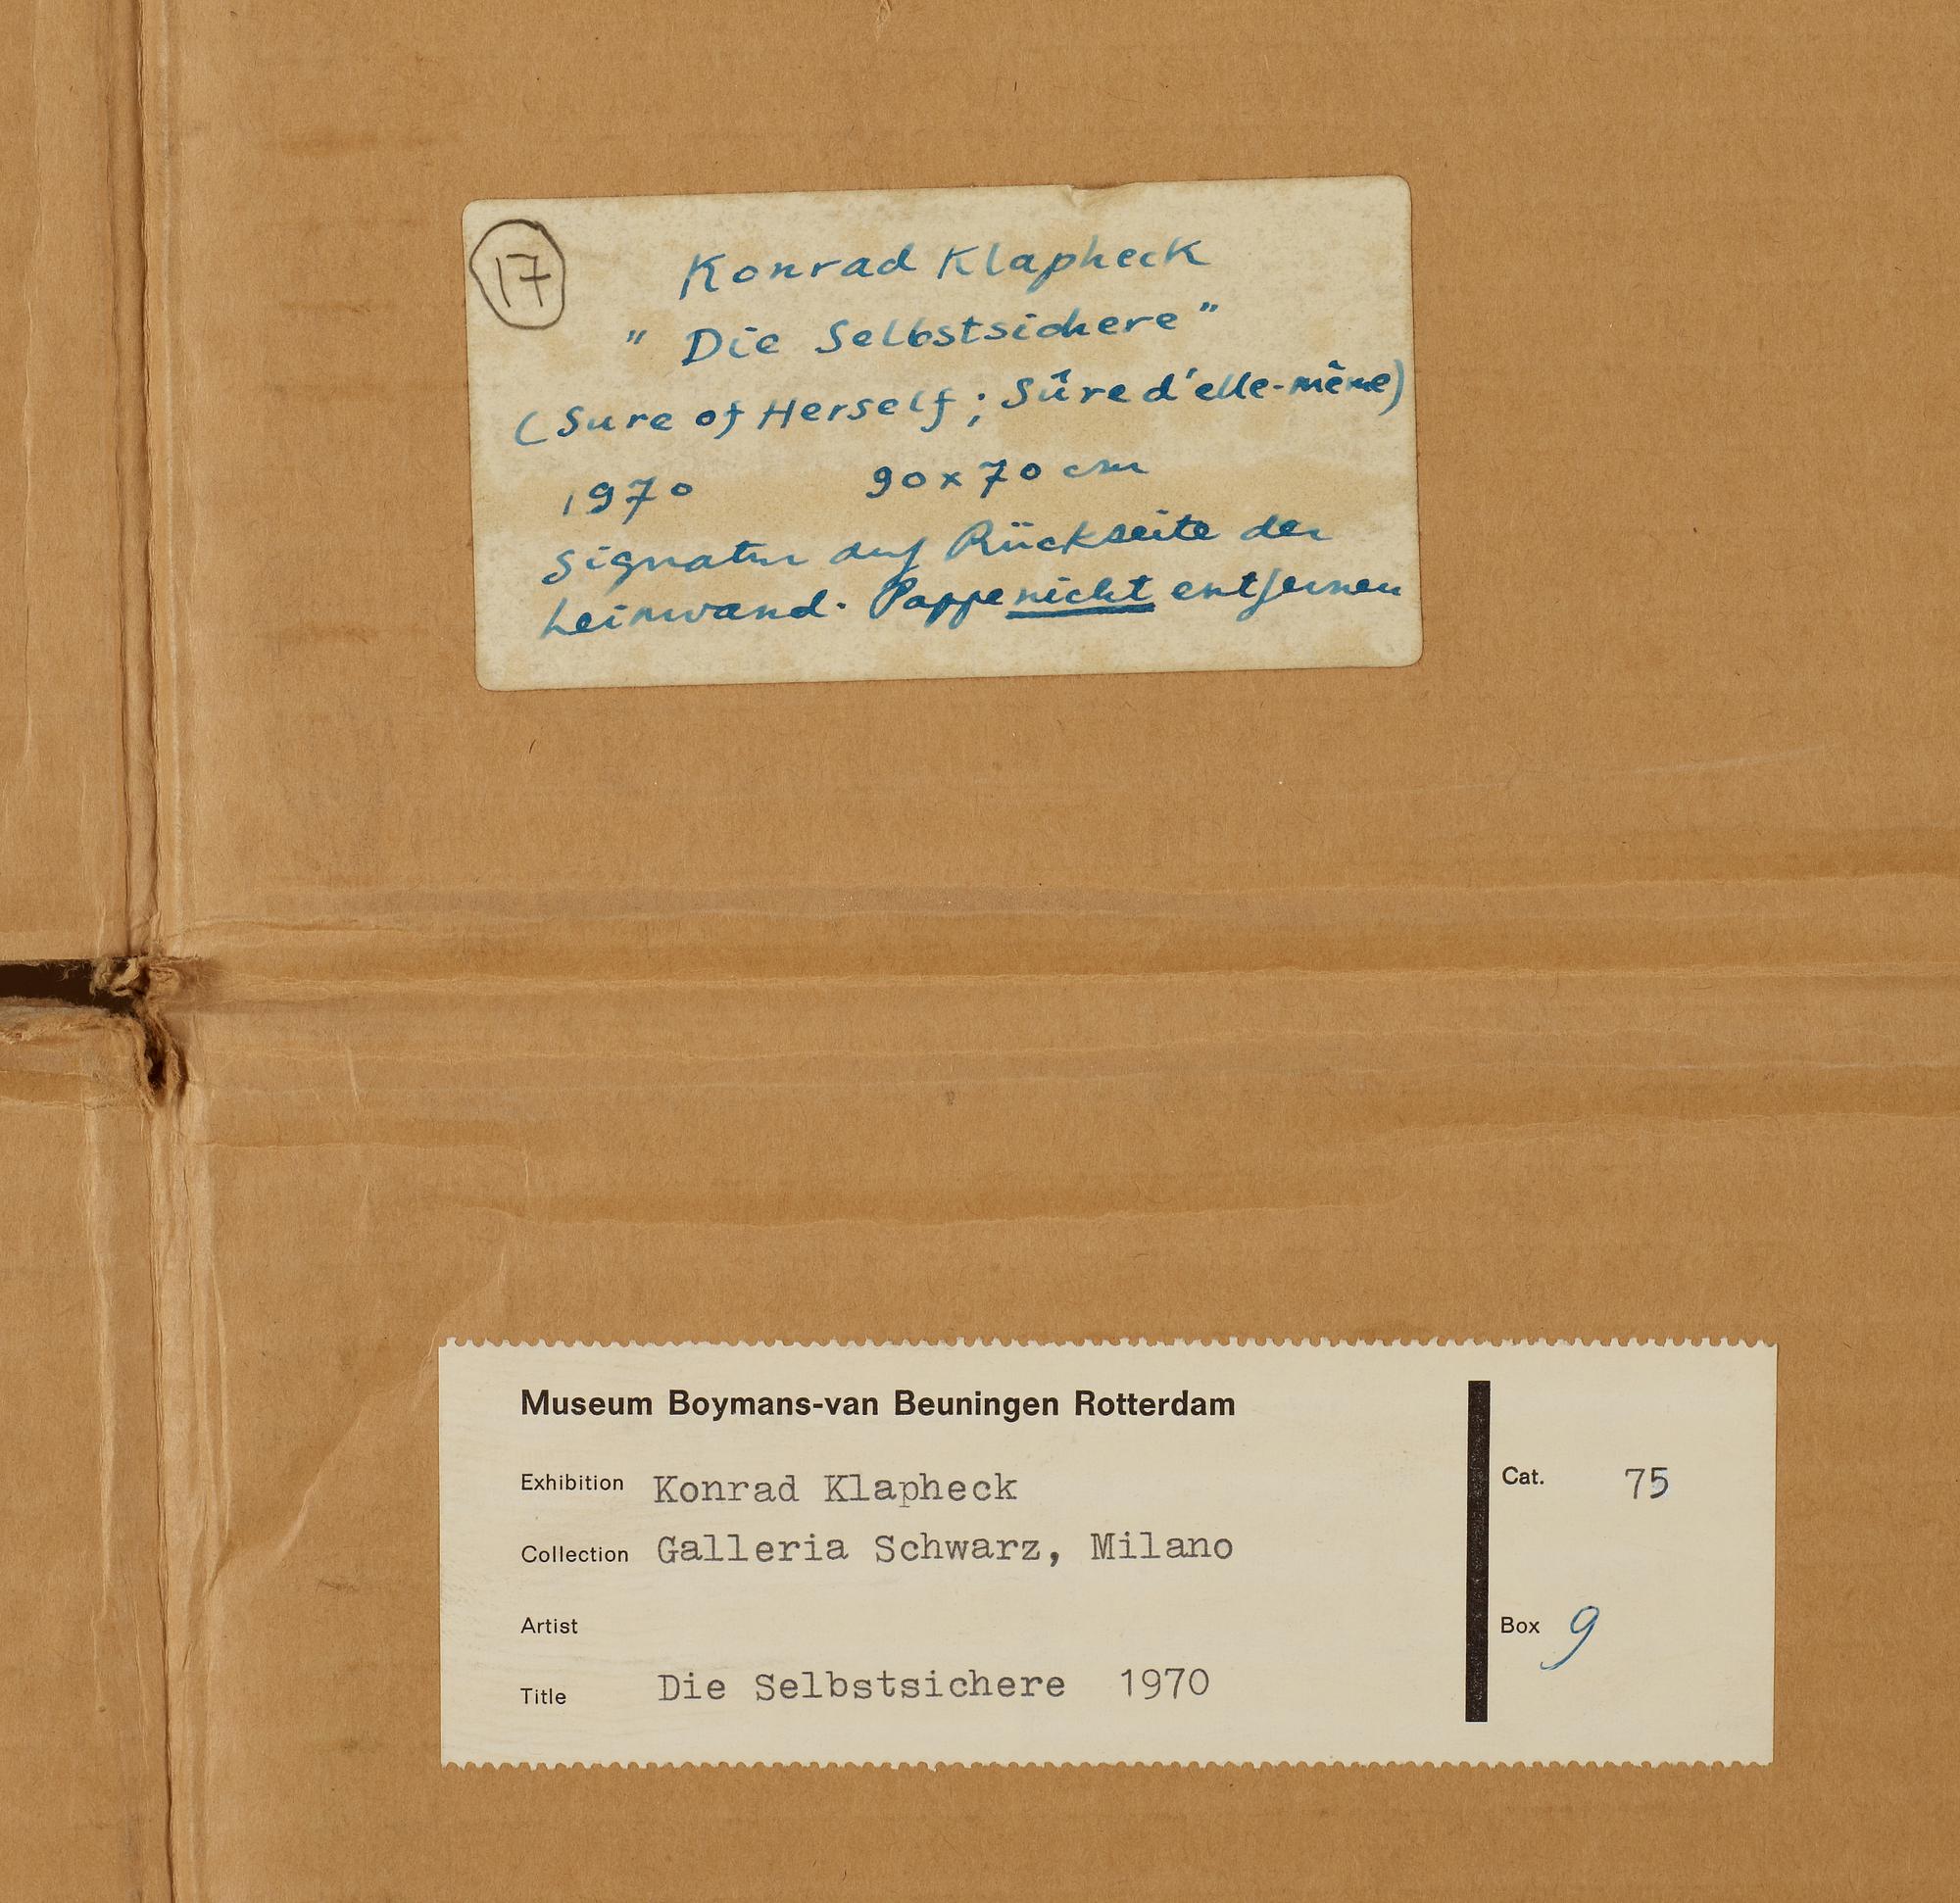 17
Konrad Klapheck
" Die Selbstsichere "
(Sure of Herself ; Sûre d'elle-même)
1970 90 x 70 cm
Signatur auf Rückseite der
Leinwand. Pappe nicht entfernen
Museum Boymans-van Beuningen Rotterdam
Exhibition Konrad Klapheck
Cat. 75
Collection Galleria Schwarz, Milano
Artist
Box 9
Title Die Selbstsichere 1970